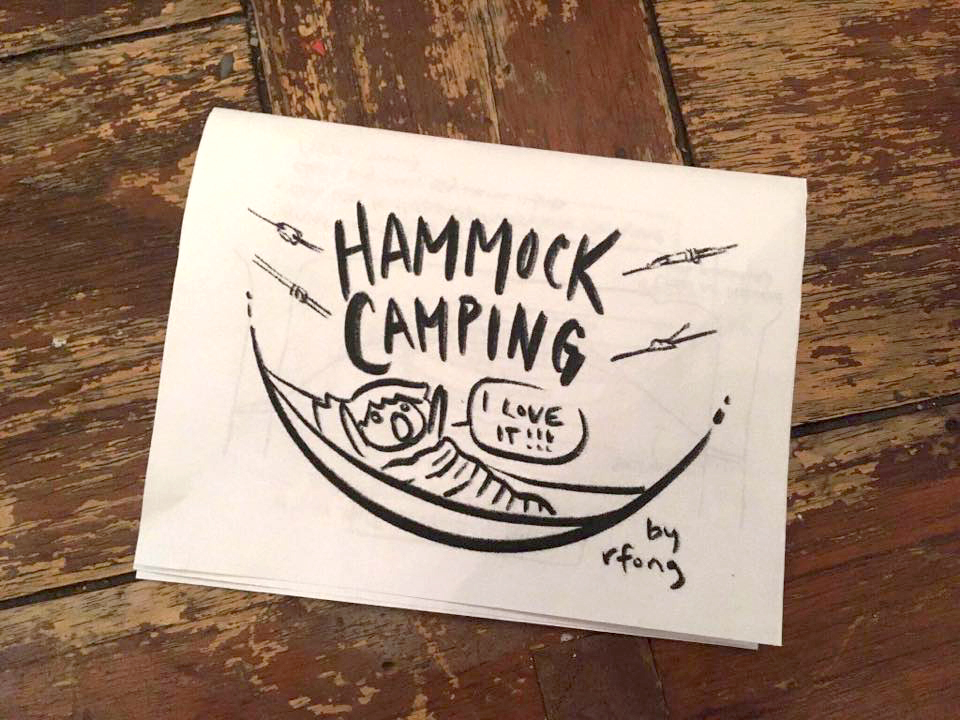 HAMMOCK
CAMPING
I LOVE
IT!!!
by
rfong